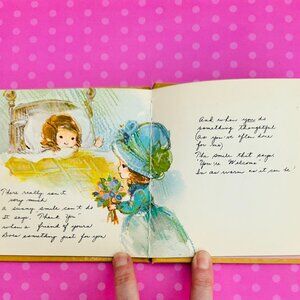 There really isn't
very much
a sunny smile can't do
It says, "Thank You"
when a friend of yours
Does something just for you
And when you do
something thoughtful
(As you've often done
for me)
The smile that says
"You're Welcome"
Is as warm as it can be!